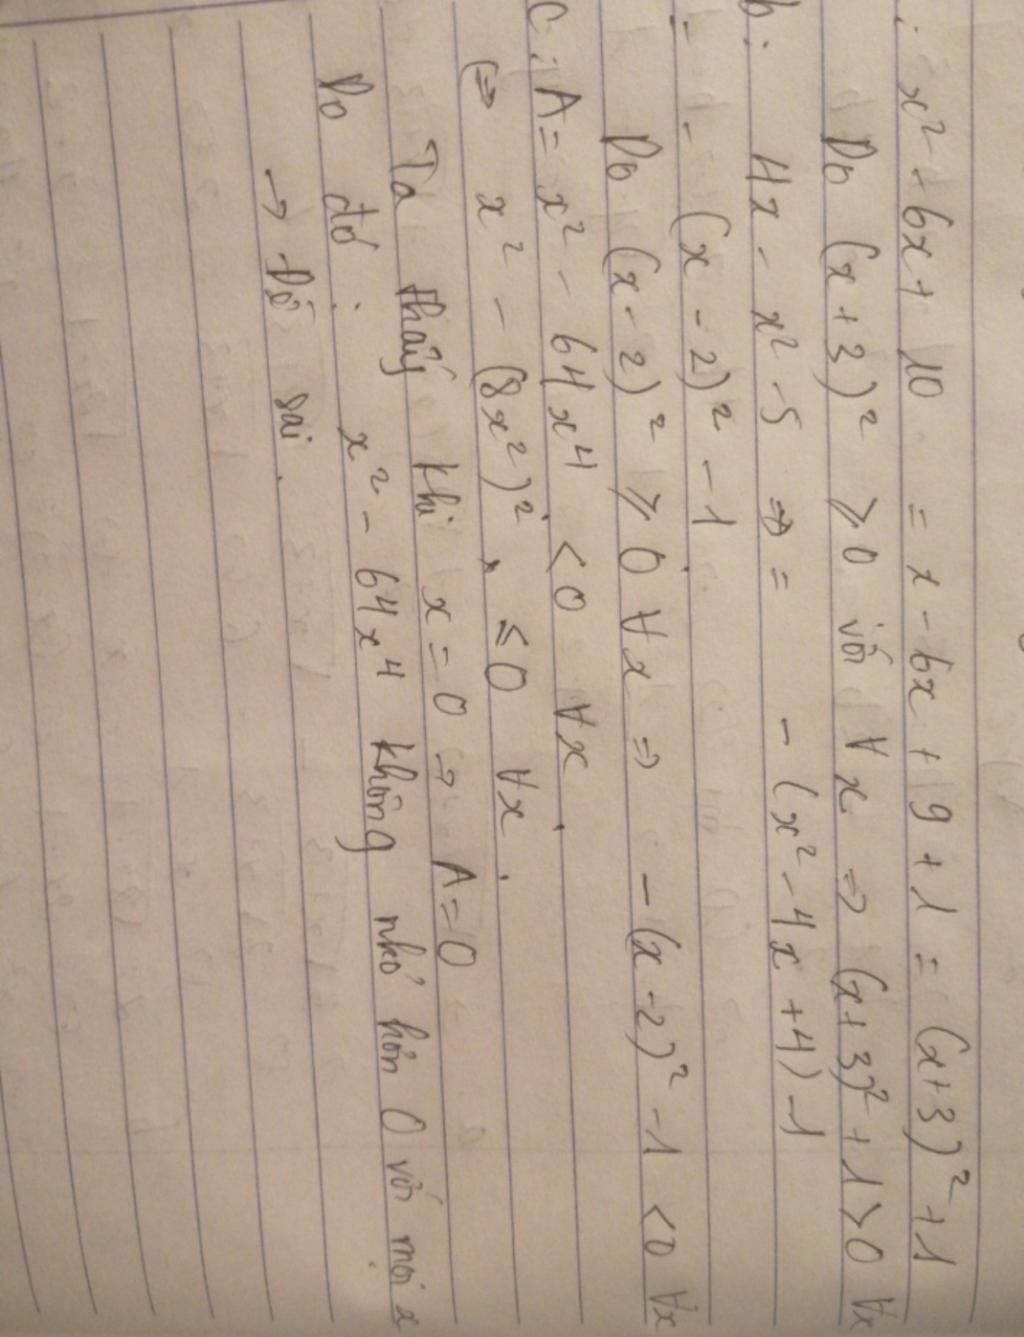 . x² + 6x + 10 = x - 6x + 9 + 1 = (x+3)² + 1
Do (x+3)² ⩾ 0 với ∀ x ⇒ (x+3)² + 1 > 0 ∀x
b. 4x - x² - 5 ⇒ = - (x² - 4x + 4) - 1
= - (x - 2)² - 1
Do (x-2)² ⩾ 0 ∀ x ⇒ - (x-2)² - 1 < 0 ∀x
C. A = x² - 64x⁴ < 0 ∀x.
⇔ x² - (8x²)² ≤ 0 ∀x.
Ta thấy khi x = 0 → A = 0
Do đó : x² - 64x⁴ không nhỏ hơn 0 với mọi x
→ Đề sai.